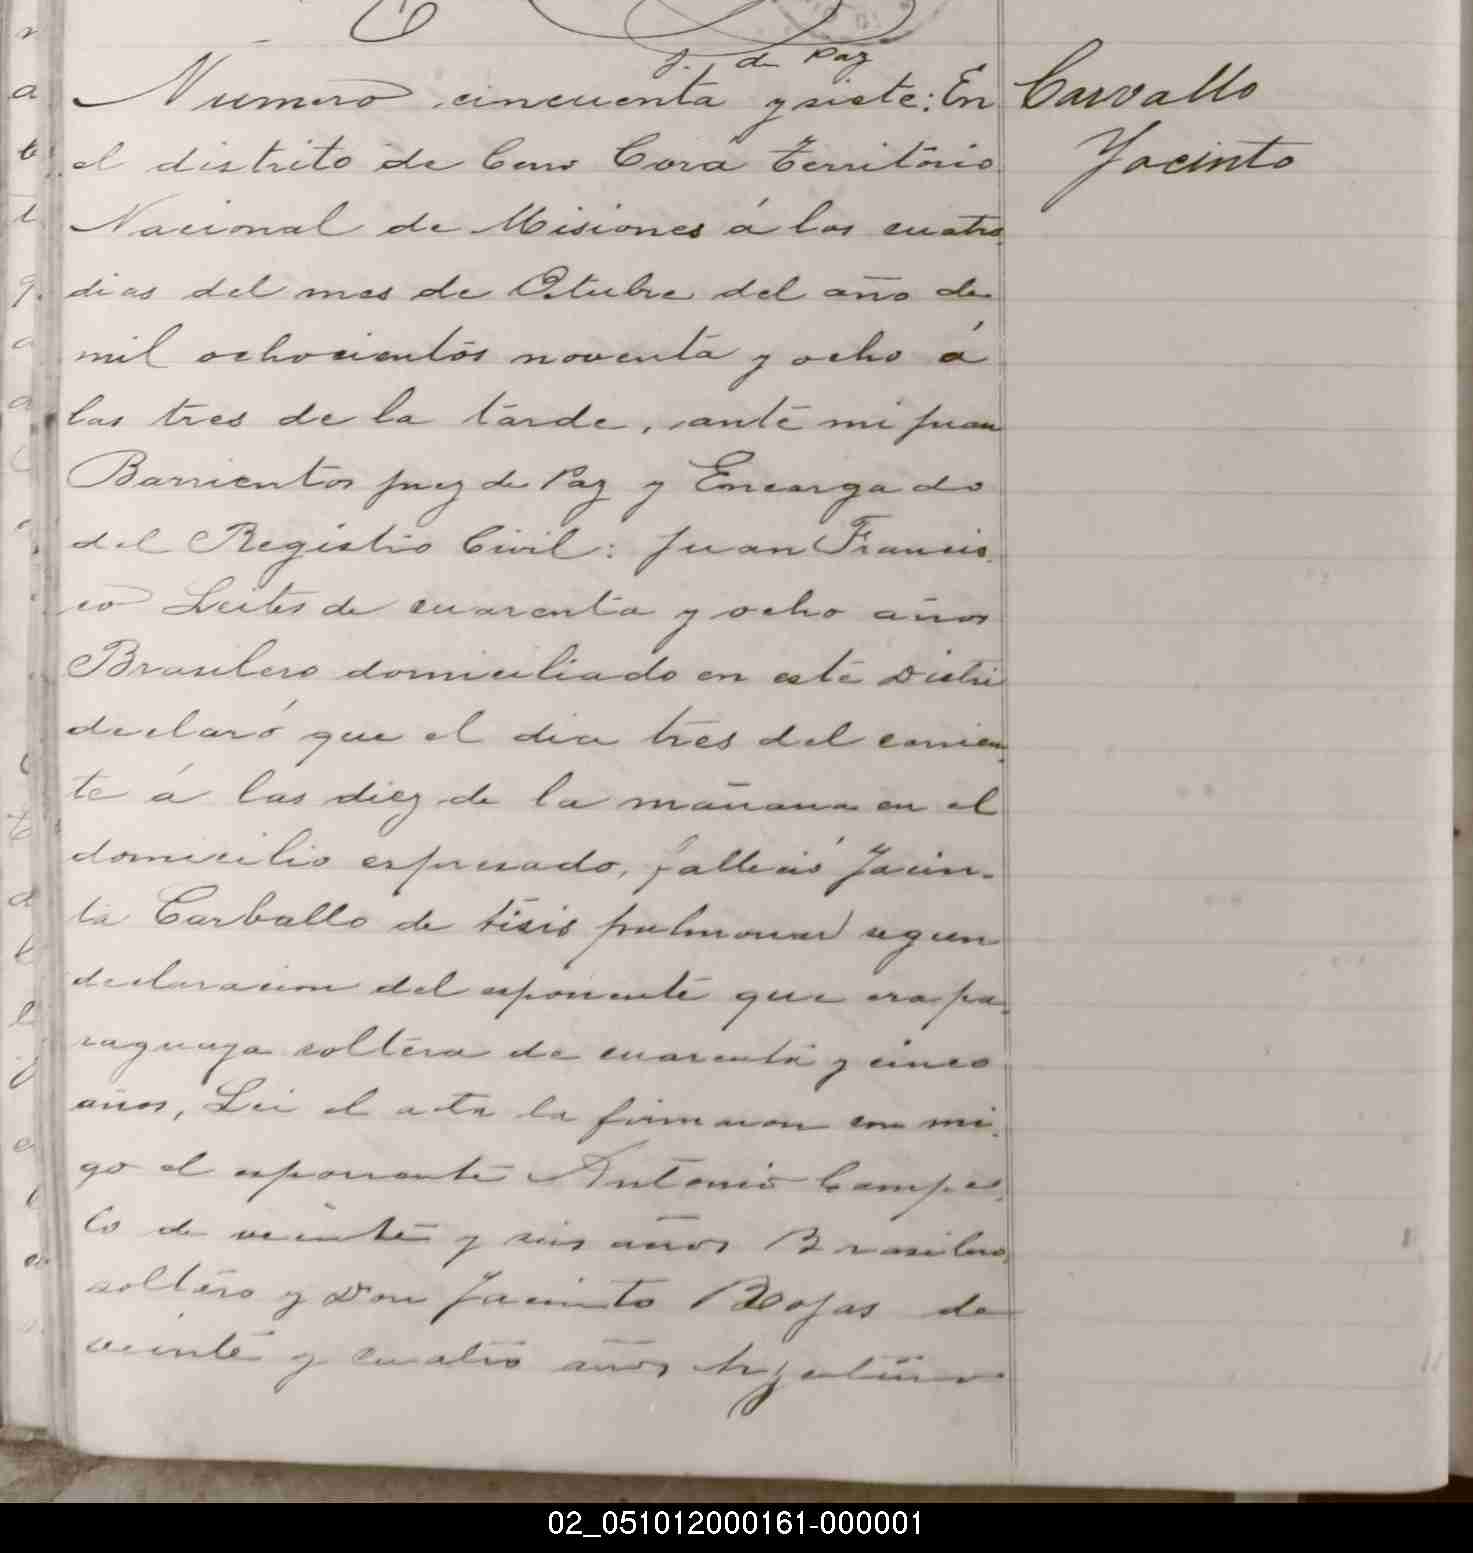 J. de Paz
Número cincuenta y siete: En
el distrito de Cerro Corá Território
Nacional de Misiones á los cuatro
dias del mes de Octubre del año de
mil ochocientos noventa y ocho á
las tres de la tarde, ante mi Juan
Barrientos Juez de Paz y Encargado
del Registro Civil: Juan Francis
co Leites de cuarenta y ocho años
Brasilero domiciliado en este Distri
declaró que el dia tres del corrien
te á las diez de la mañana en el
domicilio espresado, falleció Jacin-
ta Carballo de tisis pulmonar segun
declaracion del esponente que era pa
raguaya soltera de cuarenta y cinco
años, Lei el acta la firmaron con mi
go el esponente Antonio Campe
lo de veinte y seis años Brasilero
soltero y Don Jacinto Rojas de
veinte y cuatro años Argentino
Carvallo
Jacinto
02_051012000161-000001